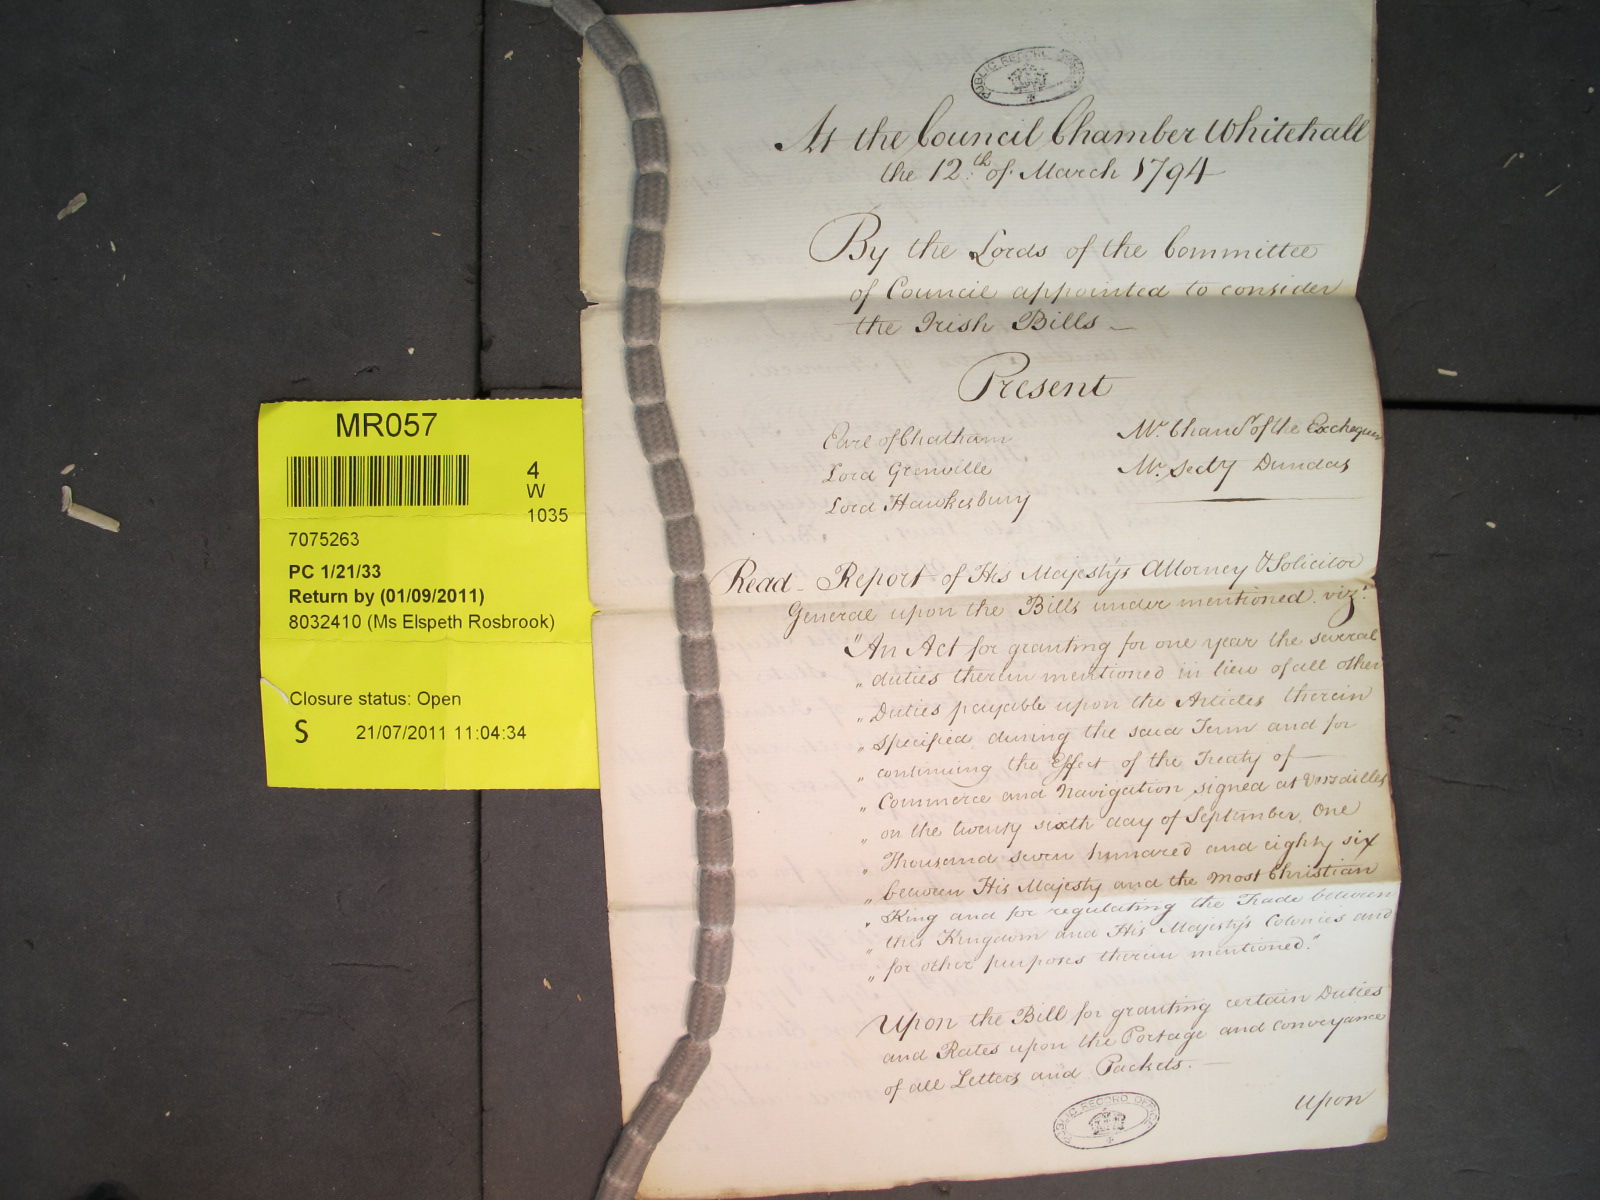 MR057
4
W
1035
7075263
PC 1/21/33
Return by (01/09/2011)
8032410 (Ms Elspeth Rosbrook)
Closure status: Open
S
21/07/2011 11:04:34
PUBLIC RECORD OFFICE
At the Council Chamber Whitehall
the 12.th of March 1794
By the Lords of the Committee
of Council appointed to consider
the Irish Bills —
Present
Earl of Chatham
Lord Grenville
Lord Hawkesbury
Mr. Chancr of the Exchequer
Mr. Secty Dundas
Read - Report of His Majesty's Attorney & Solicitor
General upon the Bills under mentioned. vizt.
"An Act for granting for one year the several
" duties therein mentioned in lieu of all other
" Duties payable upon the Articles therein
" specified, during the said Term and for
" continuing the Effect of the Treaty of —
" Commerce and Navigation signed at Versailles
" on the twenty sixth day of September, One
" Thousand seven hundred and eighty six
" between His Majesty and the most Christian
" King and for regulating the Trade between
" this Kingdom and His Majesty's Colonies and
" for other purposes therein mentioned."
Upon the Bill for granting certain Duties
and Rates upon the Portage and conveyance
of all Letters and Packets. —
upon
PUBLIC RECORD OFFICE